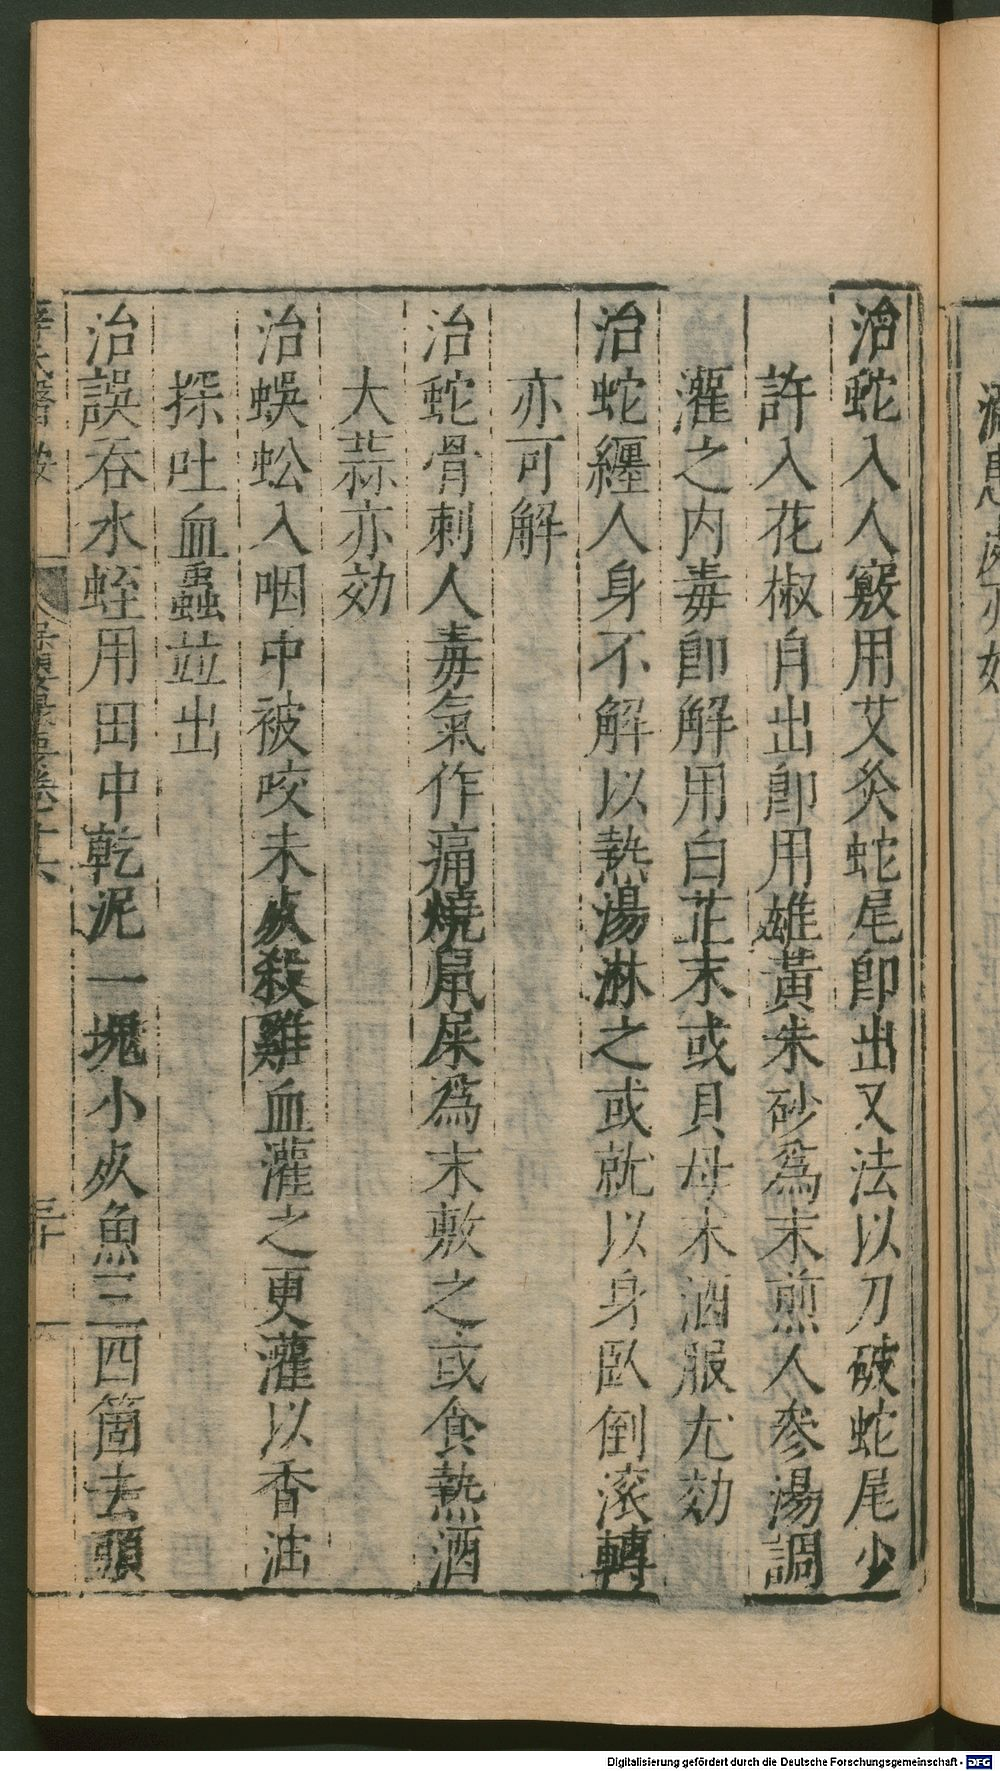 治蛇入人竅用艾灸蛇尾卽出又法以刀破蛇尾少
許入花椒自出卽用雄黃朱砂爲末煎人參湯調
灌之内毒卽解用白芷末或貝母末酒服尤効
治蛇纏人身不解以熱湯淋之或就以身臥倒滚轉
亦可解
治蛇骨刺人毒氣作痛燒鼠屎爲末敷之或食熱酒
大蒜亦効
治蜈蚣入咽中被咬未㱙殺雞血灌之更灌以香油
探吐血蟲並出
治誤吞水蛭用田中乾泥一塊小㱙魚三四箇去頭
Digitalisierung gefördert durch die Deutsche Forschungsgemeinschaft - DFG